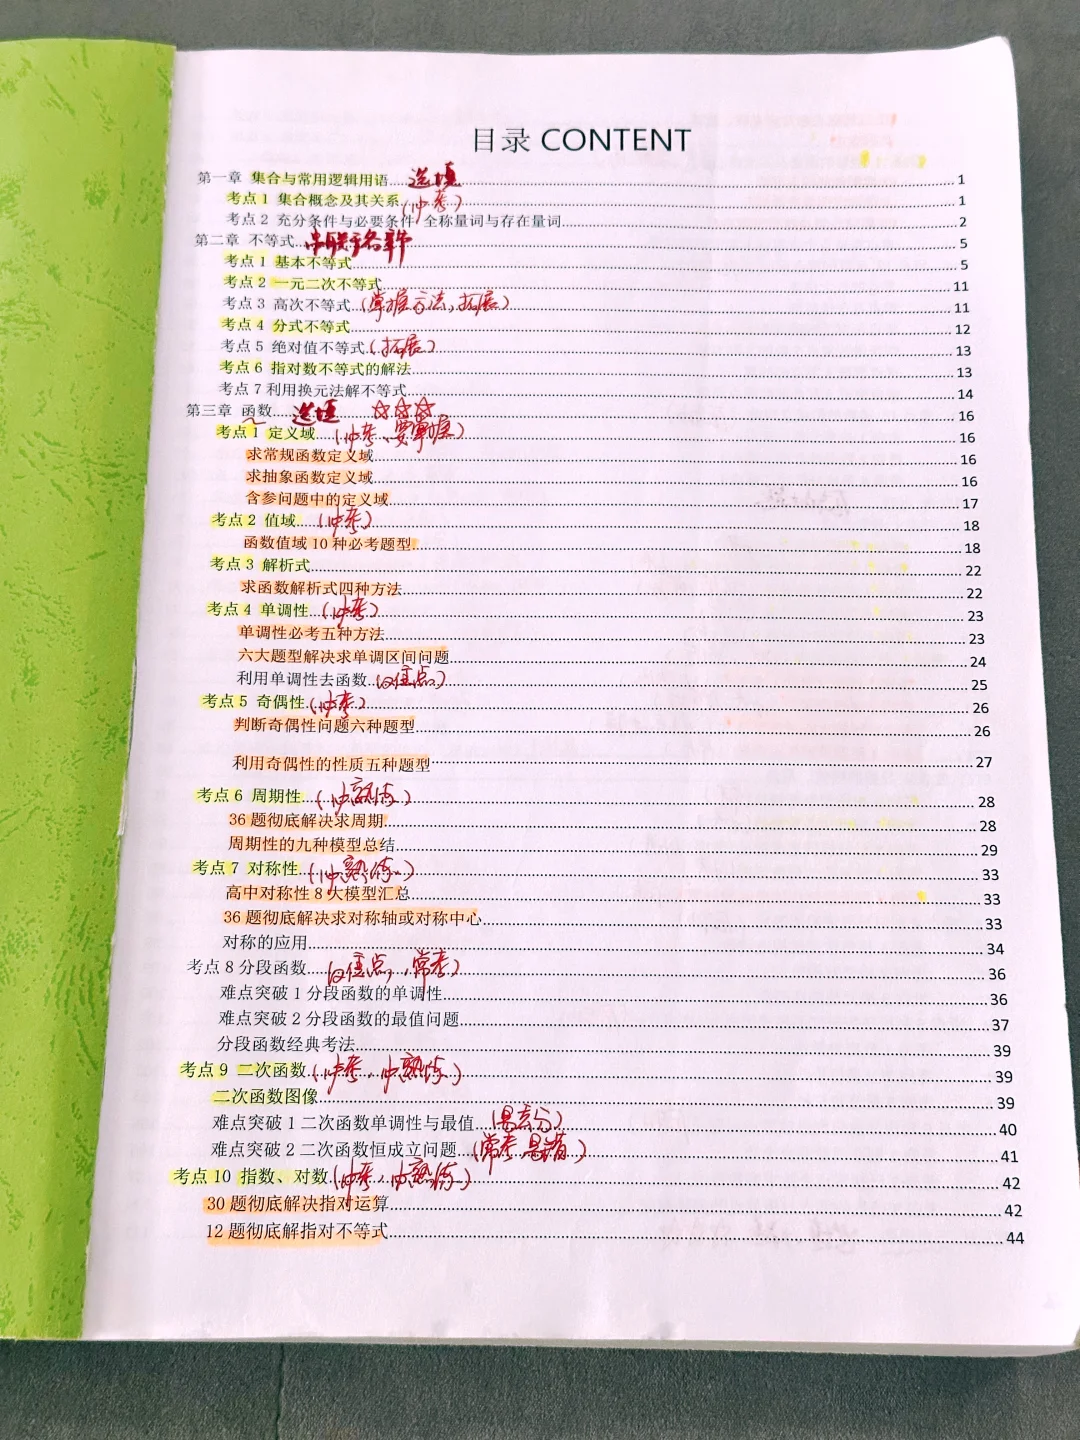 目录 CONTENT
第一章 集合与常用逻辑用语 选填 1
考点 1 集合概念及其关系 (必考) 1
考点 2 充分条件与必要条件 全称量词与存在量词 2
第二章 不等式 5
考点 1 基本不等式 5
考点 2 一元二次不等式 11
考点 3 高次不等式 (掌握方法,拓展) 11
考点 4 分式不等式 12
考点 5 绝对值不等式 (拓展) 13
考点 6 指对数不等式的解法 13
考点 7 利用换元法解不等式 14
第三章 函数 选填 ☆☆☆ 16
考点 1 定义域 (必考、要掌握) 16
求常规函数定义域 16
求抽象函数定义域 16
含参问题中的定义域 17
考点 2 值域 (必考) 18
函数值域 10 种必考题型 18
考点 3 解析式 22
求函数解析式四种方法 22
考点 4 单调性 (必考) 23
单调性必考五种方法 23
六大题型解决求单调区间问题 24
利用单调性去函数 25
考点 5 奇偶性 (必考) 26
判断奇偶性问题六种题型 26
利用奇偶性的性质五种题型 27
考点 6 周期性 (必熟练) 28
36 题彻底解决求周期 28
周期性的九种模型总结 29
考点 7 对称性 (必熟练) 33
高中对称性 8 大模型汇总 33
36 题彻底解决求对称轴或对称中心 33
对称的应用 34
考点 8 分段函数 常考) 36
难点突破 1 分段函数的单调性 36
难点突破 2 分段函数的最值问题 37
分段函数经典考法 39
考点 9 二次函数 (必考,必熟练) 39
二次函数图像 39
难点突破 1 二次函数单调性与最值 40
难点突破 2 二次函数恒成立问题 (常考 易错) 41
考点 10 指数、对数 (必考,必熟练) 42
30 题彻底解决指对运算 42
12 题彻底解指对不等式 44